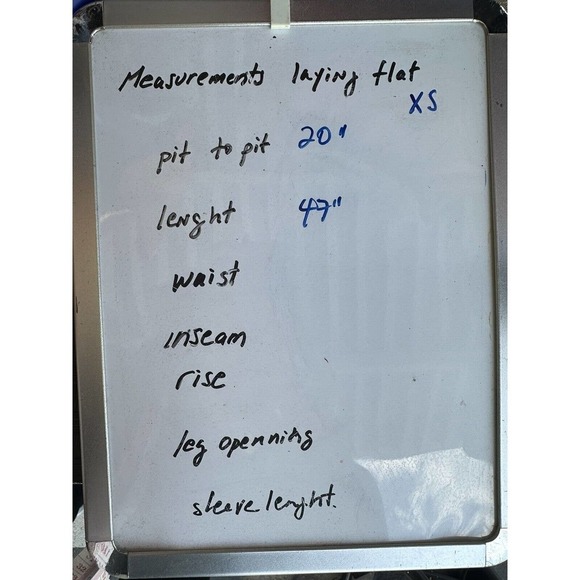 Measurements laying flat
XS
pit to pit 20"
lenght 47"
waist
inseam
rise
leg openning
sleave lenght.